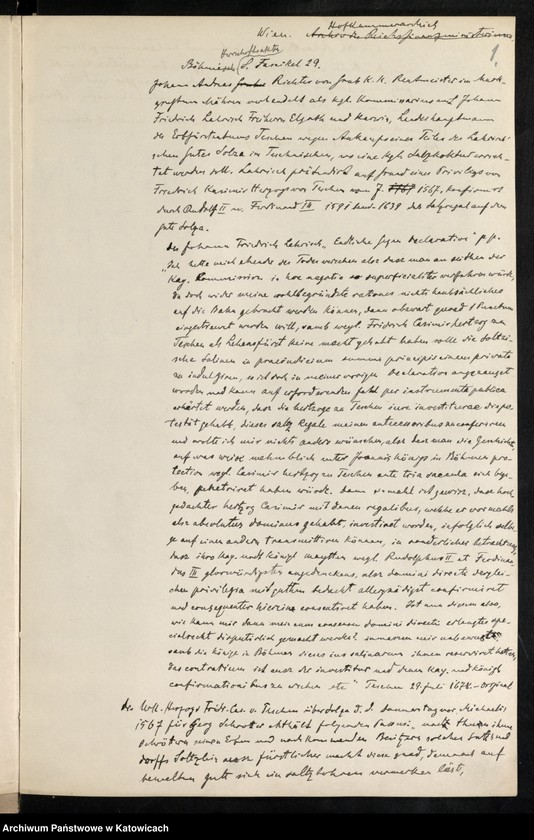 Wien. Hofkammerarchiv
Archiv des Reichsfinanzministeriums
1
Herrschaftsakten
Böhmische S. Faszikel 29.
Johann Andreas Richter von Grab K.K. Rentmeister in Mark-
graftum Mähren verhandelt als kgl. Kommissarius mit Johann
Friedrich Lahrisch Freiherrn Elgoth und Karwin, Landeshauptmann
des Erbfürstentums Teschen wegen Ankaufes eines Teiles des Lahrisch-
schen Gutes Solza im Teschnischen, wo eine kgl. Salzkoktur errich-
tet werden soll. Lahrisch prätendirt auf grund eines Privilegs von
Friedrich Kasimir Herzogs von Teschen vom J. 1567, konfirmirt
durch Rudolf II u. Ferdinand III 1591 und 1639 das Salzregal auf dem
gute Solza.
Des Johann Friedrich Lahrisch "Endliche gegen Declaration" pp.
"Ich hette mich ehender des Todes versehen als dass man an seithen der
Kay. Commission in hoc negotio so superficialiter verfahren würde,
da doch wider meine wohlbegründete rationes nichts haubtsächliches
auf die Bahn gebracht werden können, dann obwart quoad 1 Punctum
eingestreuet werden will, samb weyl. Fridrich Casimir hertzog zu
Teschen als Lehensfürst keine macht gehabt haben solle die Soltzi-
sche Salinen in praeiudicium summi principis einem privato
zu indulgiren, so ist doch in meiner vorigen Declaration angezaiget
worden und kann auf erforderenden fahl per instrumenta publica
erhärtet werden, dass die hertzoge zu Teschen iure investiturae dispo-
testät gehabt, dieses saltz Regale meinen antecessoribus zu conferiren
und wolte ich mir nichts anders wünschen, alss dass man die Geschichte
auf was weise nehmblich unter Joannis königs in Böhmen pro-
tection weyl. Casimir hertzog zu Teschen ante tria saecula sich bege-
ben, penetriret haben würde. Dann einmahl ist gewiss, dass hoch
gedachter hertzog Casimir mit denen regalibus, welche er vormahls
als absolutus dominus gehabt, investiret worden, infolglich solch-
ge auf einen andern transmittiren können, in sonderlicher betrachtung,
dass ihro Kay. undt Königl. mayttten weyl. Rudolphus II et Ferdinan-
dus III glorwürdigsten angedenckens, alss domini directi derglei-
chen privilegia mit guttem bedacht allergnädigst confirmiret
und consequenter hierein consentiret haben. Ist nun diesem also,
wie kann mir dann mein cum consensu domini directi erlangtes spe-
cialrecht disputirlich gemacht werden? immassen mir unbewust,
samb die könige in Böhmen dieses ius salinarum ihnen reserviret hetten,
das contrarium ist auss der investitur und denen Kay. und königl.
confirmationibus zu ersehen etc" Teschen 29. Juli 1674. – Original
Des Urk. Herzogs Fridr. Cas. v. Teschen über Solza d. d. donnerstag vor Michaelis
1567 für Georg Schrötter enthält folgenden Passus: nach thuen ihme
Schröttern seinen Erben und nachkommenden Besitzern solches gutts und
dorffs Soltz bis auss fürstlicher macht diese gnad, demnach auf
demselben gutt sich ein saltzbohrens vermerken läst,
Archiwum Państwowe w Katowicach